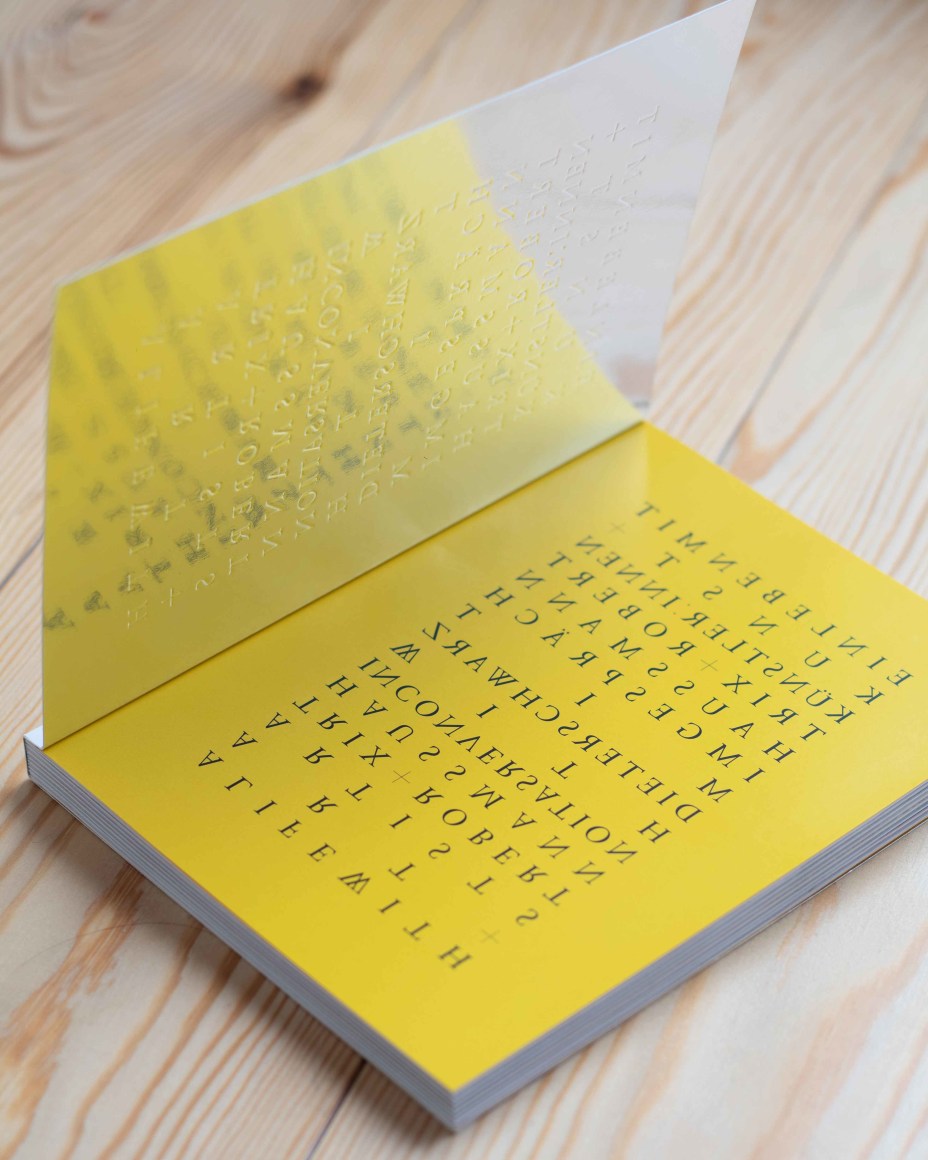 EINLEBENMIT
KUNST+
KÜNSTLER:INNEN
TRIX+ROBERT
HAUSSMANN
IMGESPRÄCH
MIT
DIETERSCHWARZ
WITH
INCONVERSATION
HAUSSMANN
TRIX+ROBERT
ARTISTS
ART+
ALIFEWITH